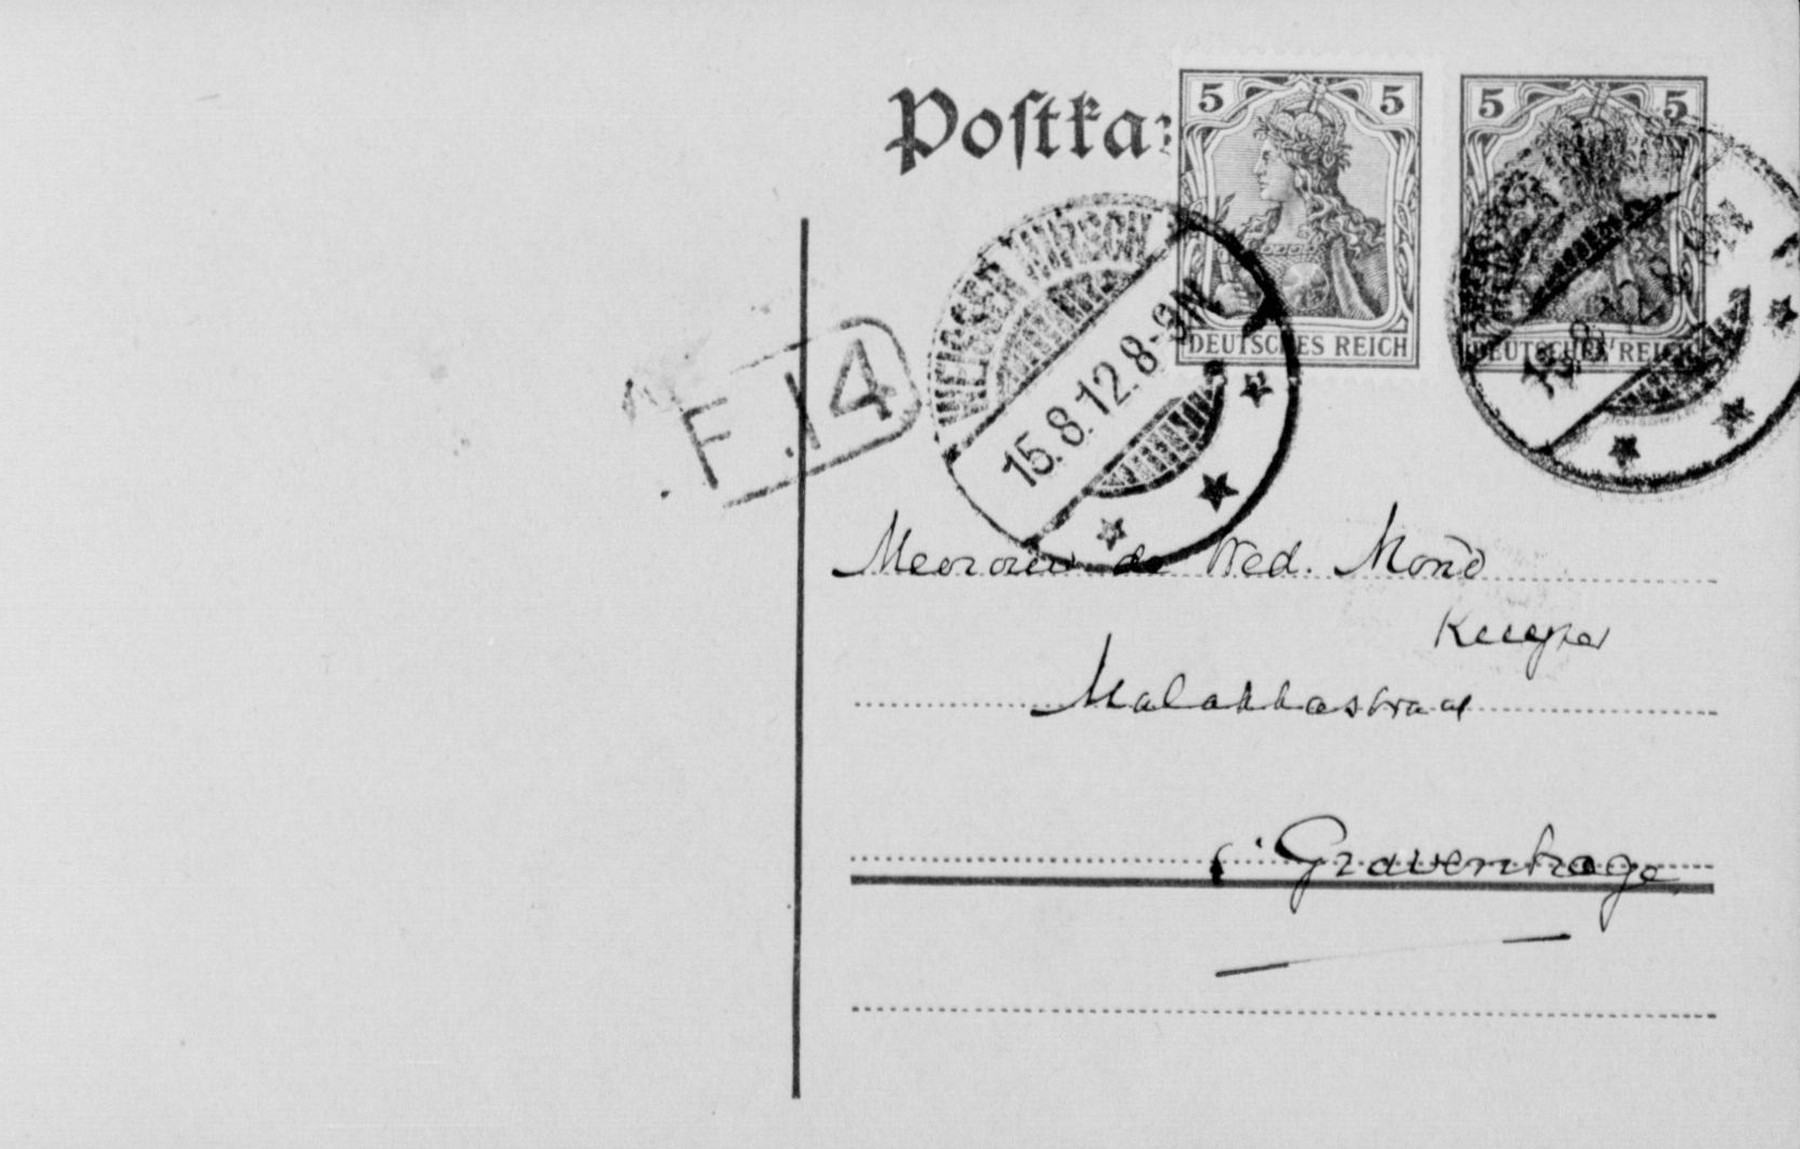 Postka
5 5
DEUTSCHES REICH
5 5
DEUTSCHES REICH
WEISSER HIRSCH
15.8.12.8-9N.
F. 14
Mevrouw de Wed. Mond
Kuyper
Malakkastraat
s' Gravenhage